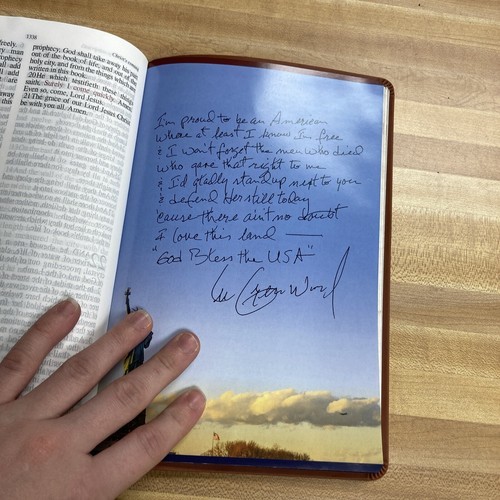 3338
Christ's
freely.
prophecy, God shall take away his part
out of the book of life, and out of the
holy city, and from the things which are
written in this book.
20 He which testifieth these things
saith, Surely I come quickly. Amen.
Even so, come, Lord Jesus.
21 The grace of our Lord Jesus Christ
be with you all. Amen.
I'm proud to be an American
where at least I know I'm free
& I won't forget the men who died
who gave that right to me
& I'd gladly stand up next to you
& defend her still today
'cause there ain't no doubt
I love this land —
"God Bless the USA"
Lee Greenwood